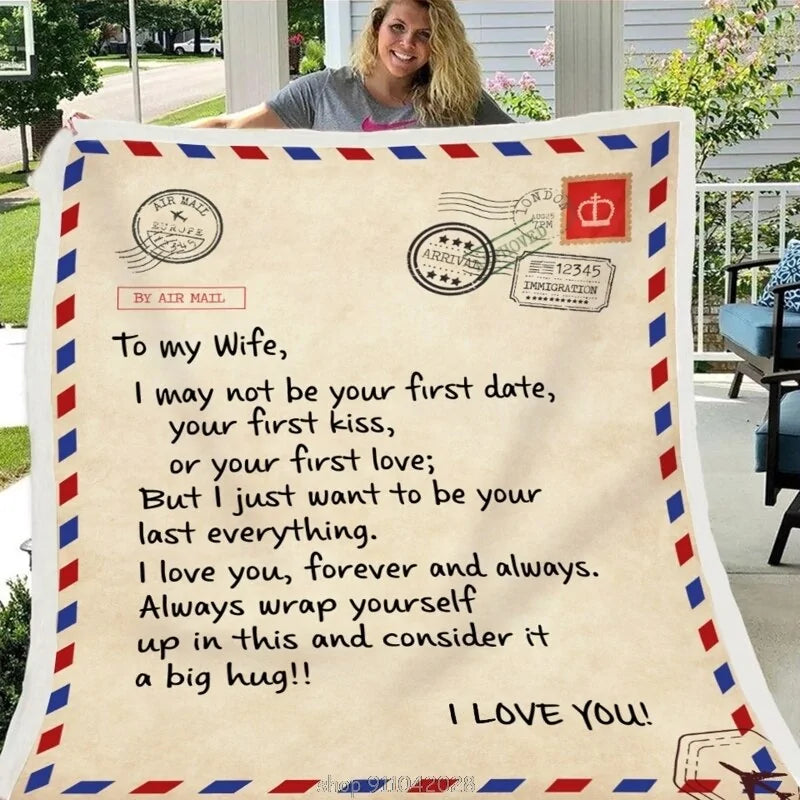 AIR MAIL
EUROPE
12345
BY AIR MAIL
LONDON
AUG 25
7PM
ARRIVAL
12345
IMMIGRATION
To my Wife,
I may not be your first date,
your first kiss,
or your first love;
But I just want to be your
last everything.
I love you, forever and always.
Always wrap yourself
up in this and consider it
a big hug!!
I LOVE YOU!
shop 911042028